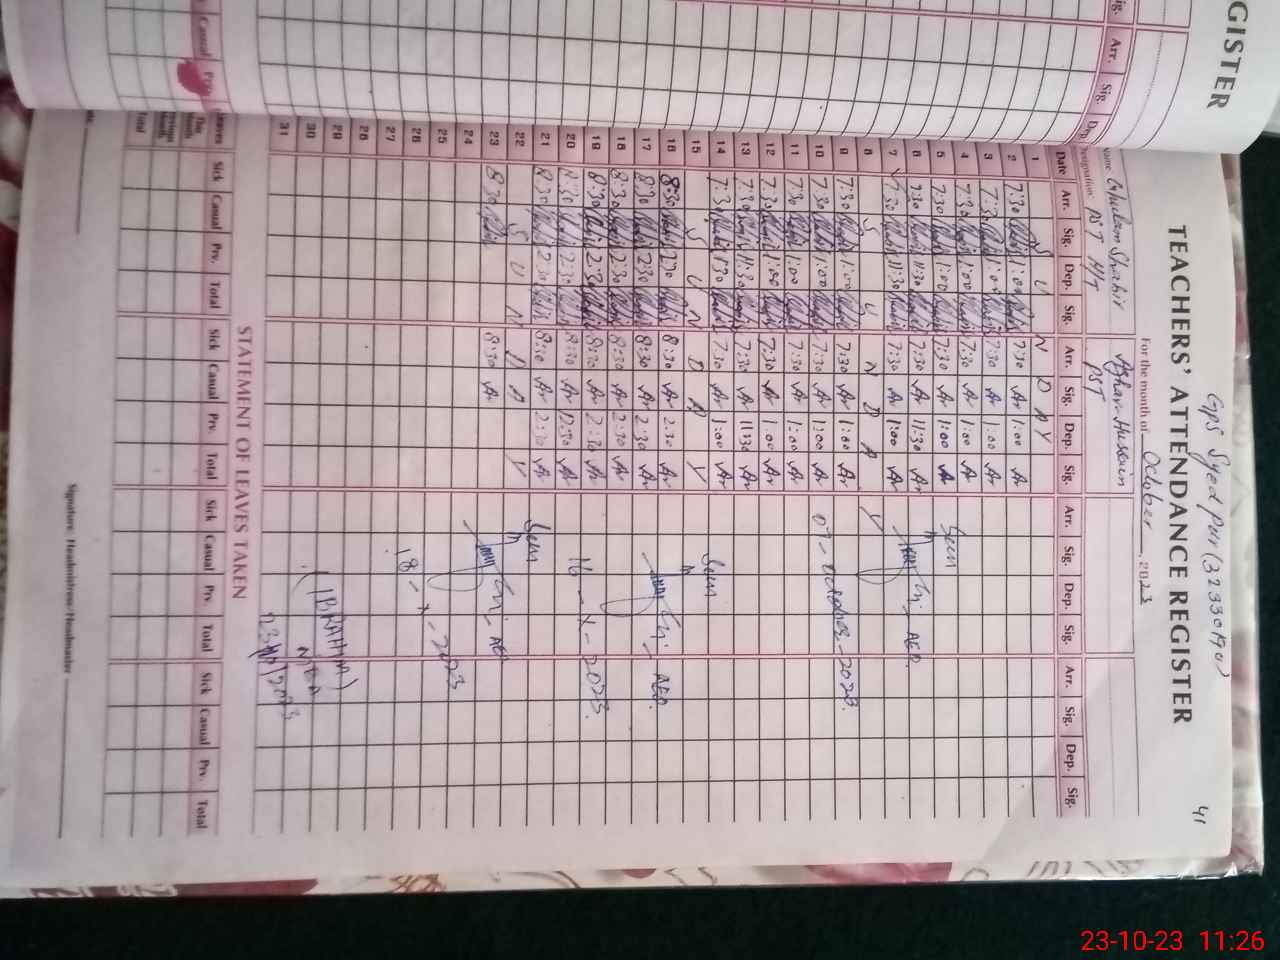 GISTER
Arr. Sig. Dep.
Casual Prv.
41
GPS Syed Pur (32330190)
TEACHERS' ATTENDANCE REGISTER
For the month of October, 2023
Name Ghulam Shabir Azhar Hussain
Designation PST H/T PST
Date Arr. Sig. Dep. Sig. Arr. Sig. Dep. Sig. Arr. Sig. Dep. Sig. Arr. Sig. Dep. Sig.
1 S U N D A Y
2 7:30 1:00 7:30 1:00
3 7:30 1:00 7:30 1:00
4 7:30 1:00 7:30 1:00
5 7:30 1:00 7:30 1:00
6 7:30 11:30 7:30 11:30
7 7:30 11:30 7:30 1:00
8 S U N D A Y
9 7:30 1:00 7:30 1:00
10 7:30 1:00 7:30 1:00
11 7:30 1:00 7:30 1:00
12 7:30 1:00 7:30 1:00
13 7:30 11:30 7:30 11:30
14 7:30 1:30 7:30 1:00
15 S U N D A Y
16 8:30 2:30 8:30 2:30
17 8:30 2:30 8:30 2:30
18 8:30 2:30 8:30 2:30
19 8:30 2:30 8:30 2:30
20 8:30 2:30 8:30 12:30
21 8:30 2:30 8:30 2:30
22 S U N D A Y
23 8:30 8:30
24
25
26
27
28
29
30
31
Seen
AEO
07-October-2023
Seen
AEO
16-X-2023
Seen
AEO
18-X-2023
(IBRAHIM)
MEA
STATEMENT OF LEAVES TAKEN
Leaves Sick Casual Prv. Total Sick Casual Prv. Total Sick Casual Prv. Total Sick Casual Prv. Total
This Month
Previous Month
Total
Signature Headmistress/Headmaster
23-10-23 11:26